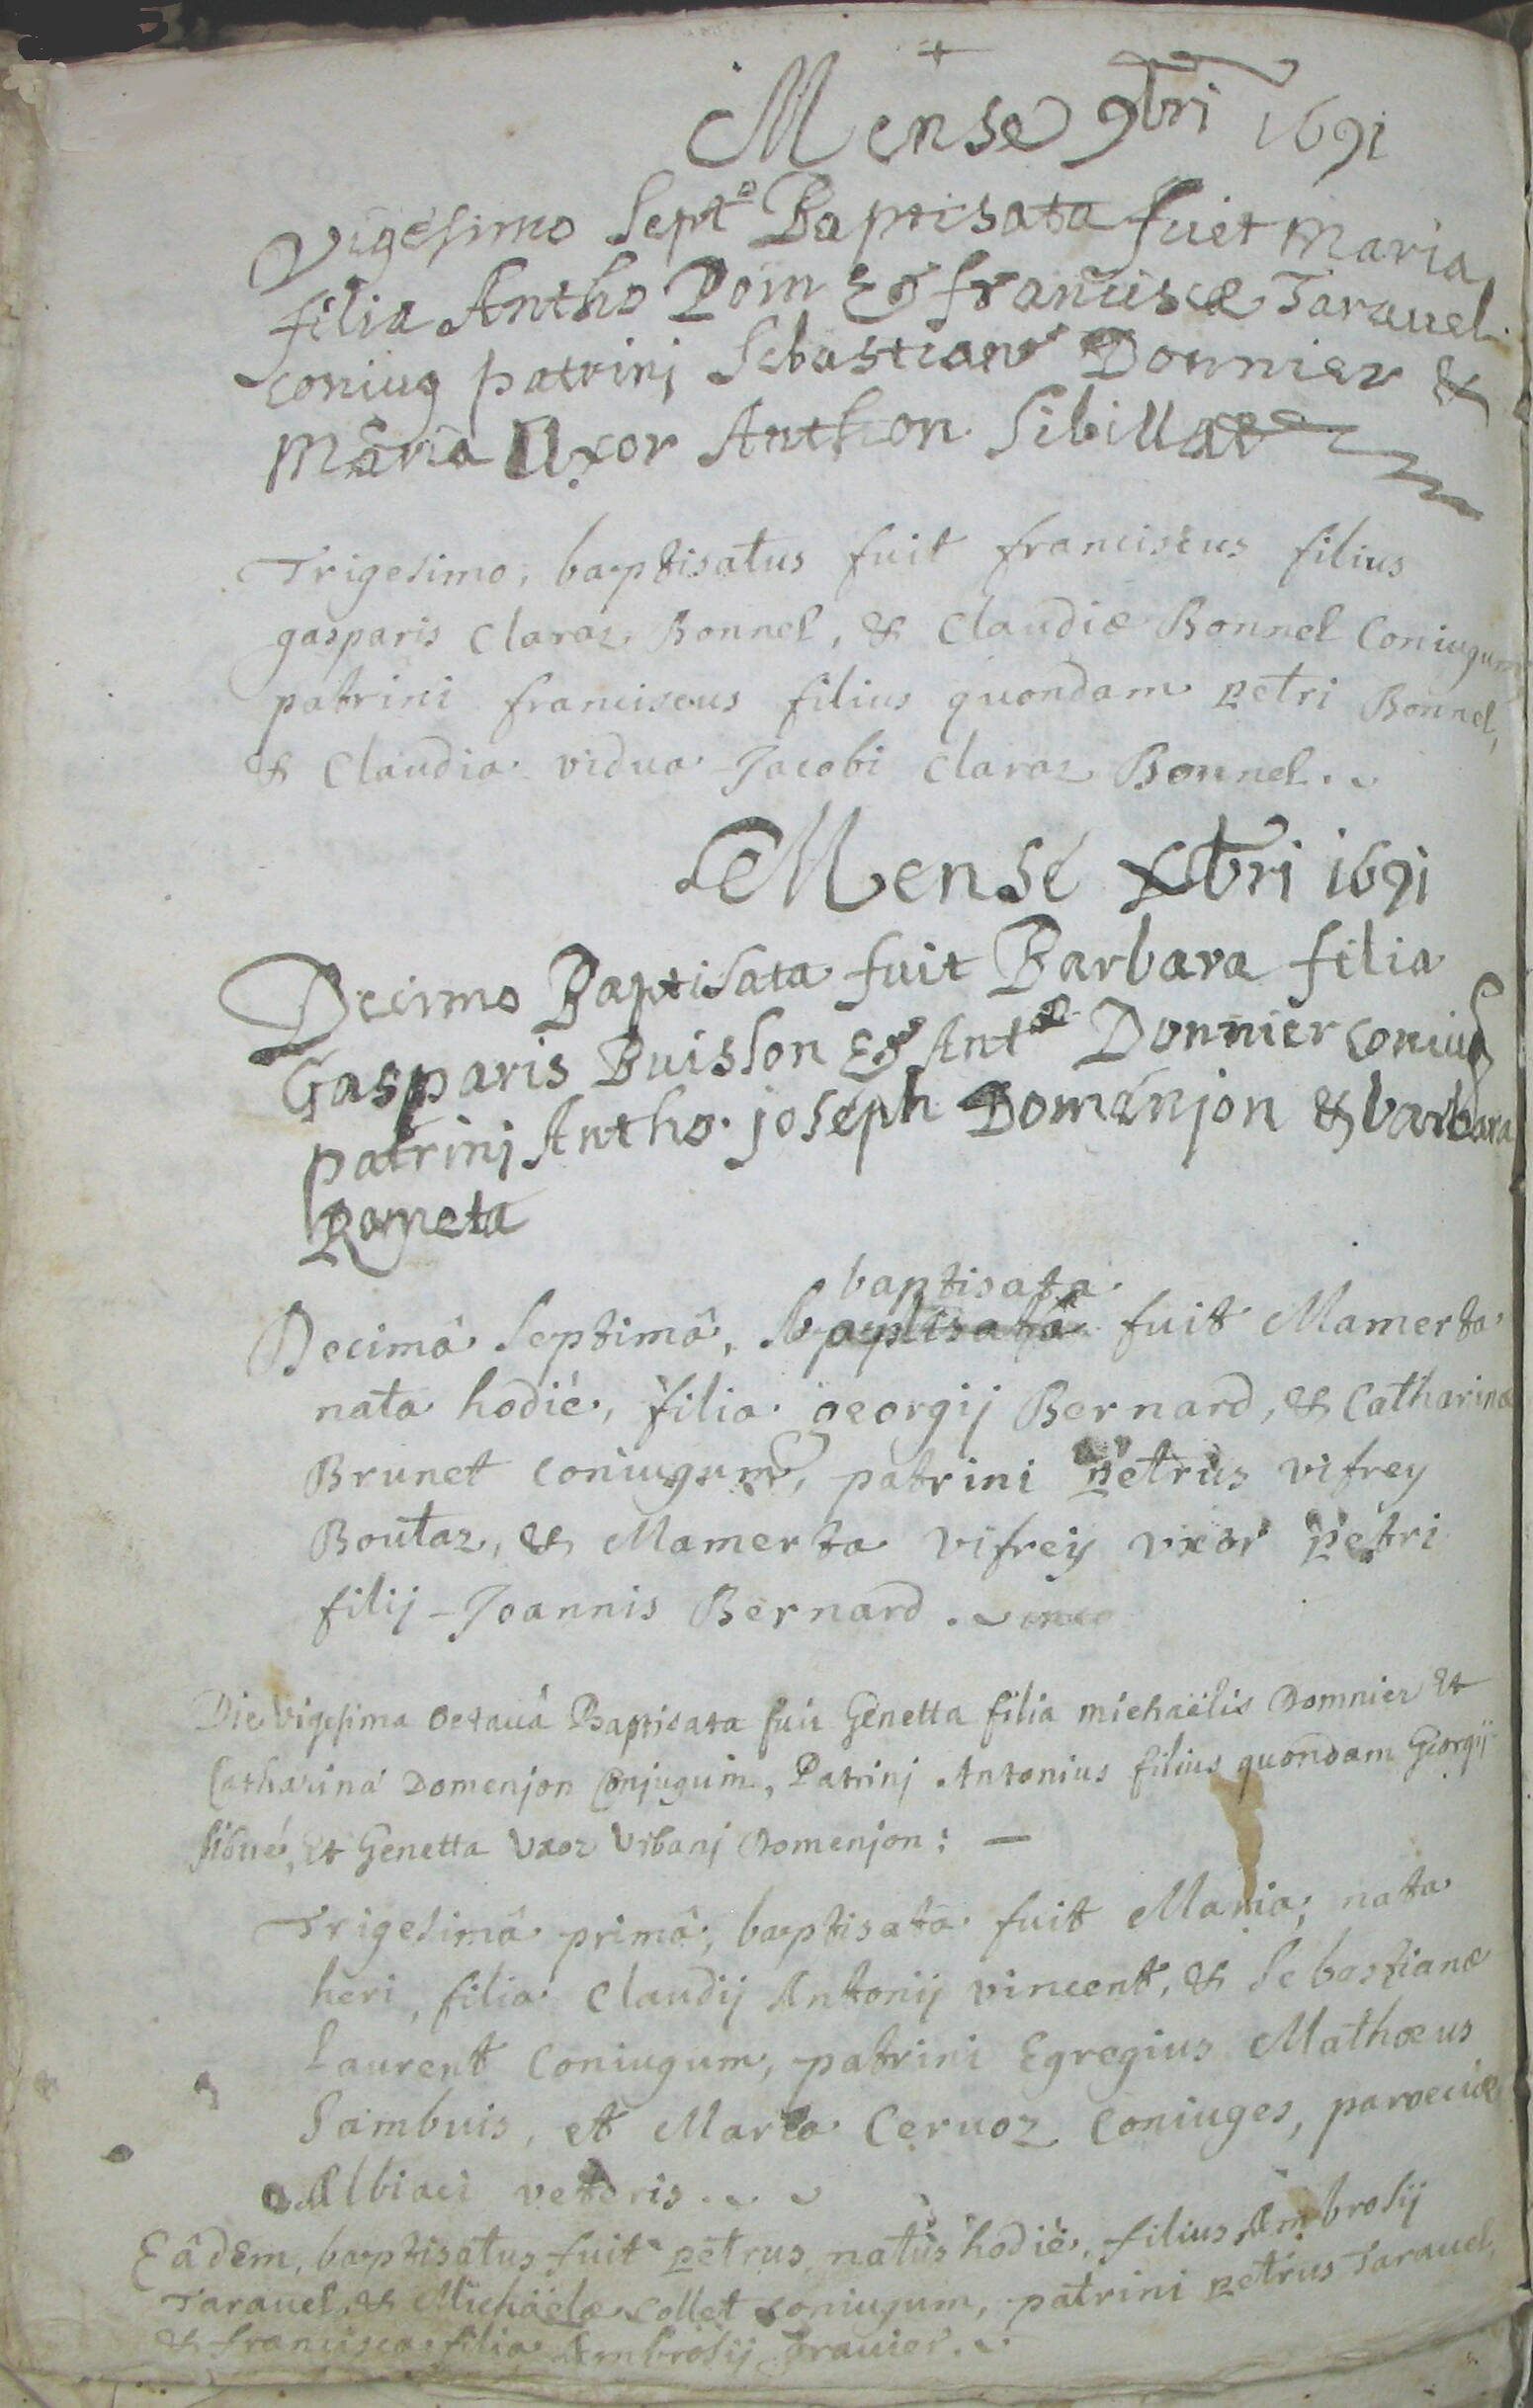 Mense 9bri 1691
Vigesimo Septo Baptisata fuit Maria
filia Antho Pom Et franciscæ Tarauel
coniug patrinj Sebastianus Donnier &
Maria Uxor Anthon Sibillat
Trigesimo, baptisatus fuit franciscus filius
gasparis Claraz Bonnel, & Claudiæ Bonnel Coniugum
patrini franciscus filius quondam petri Bonnel,
& Claudia vidua Jacobi Claraz Bonnel.
Mense Xbri 1691
Decimo Baptisata fuit Barbara filia
Gasparis Buisson Et Antæ Donnier coniug
patrinj Antho. joseph Domenjon & barbara
Rometa
baptisata
Decimâ Septimâ, fuit Mamerta
nata hodie, filia georgij Bernard, & Catharinæ
Brunet coniugum, patrini petrus vifrey
Boutaz, & Mamerta vifrey vxor petri
filij Joannis Bernard.
Die Vigesima Octauâ Baptisata fuit Genetta filia michaëlis Domnier Et
Catharina Domenjon Conjugum, Patrinj Antonius filius quondam Georgij
Sibué, Et Genetta Vxor Vrbanj Domenjon: —
Trigesimâ primâ, baptisata fuit Maria, nata
heri, filia Claudij Antonij vincent, & Sebastianæ
Laurent Coniugum, patrini Egregius Mathæus
Sambuis, et Maria Ceruoz Coniuges, paroeciæ
Albiaci veteris.
Eâdem, baptisatus fuit petrus, natus hodie, filius Ambrosij
Tarauel, & Michaëlæ collet coniugum, patrini petrus Tarauel,
& francisca filia Ambrosij grauier.